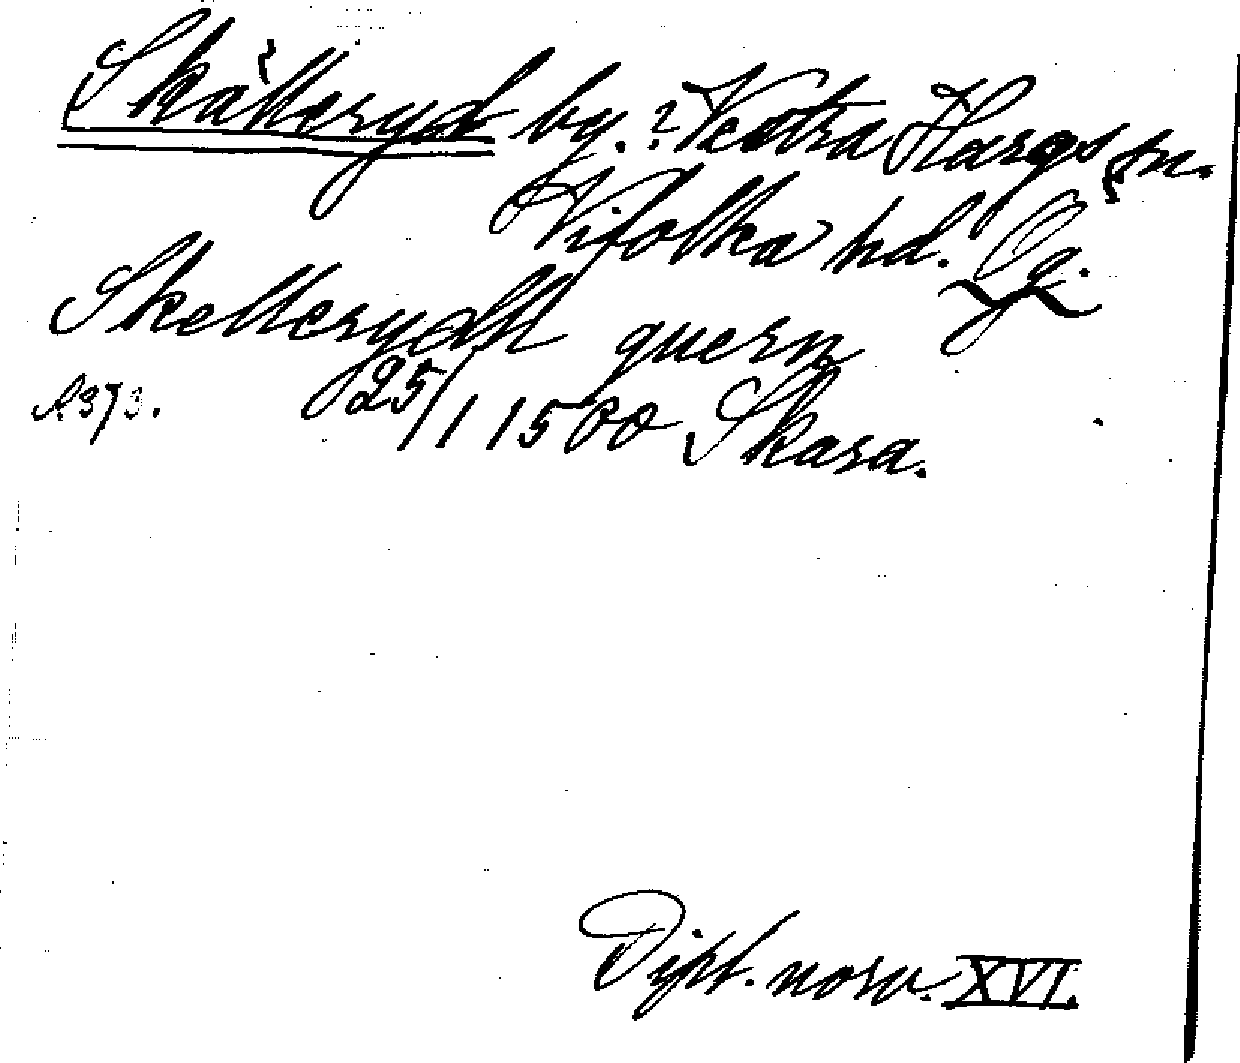 Skälleryd by. ? Vestra Hargs sn.
Vifolka hd. Ög.
Skellerydh quern
R373. 25/1 1500 Skara.
Dipl. norv. XVI.